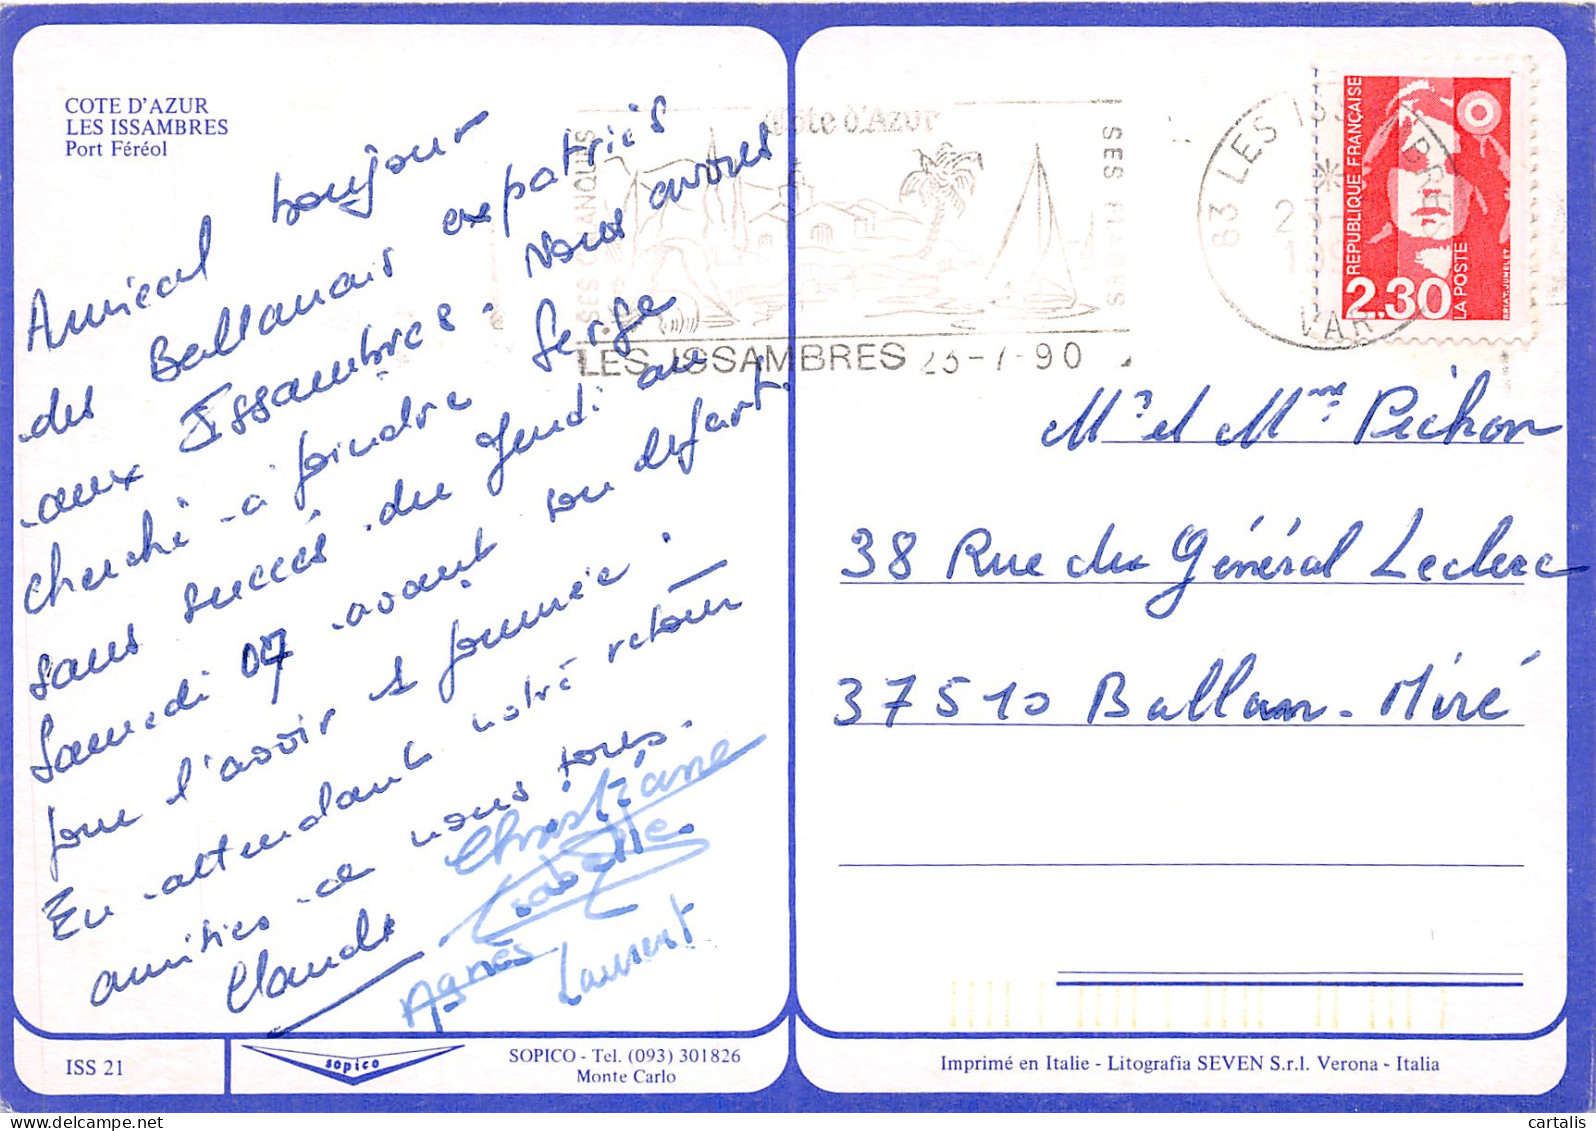 COTE D'AZUR
LES ISSAMBRES
Port Féréol
Amical bonjour
des Ballanais expatriés
aux Issambres. Nous avons
cherché à joindre Serge
sans succés du Jeudi au
Samedi 07 avant son départ
pour l'avoir 1 journée.
En attendant notre retour
amitiés de nous tous.
Claude
Christiane
Isabelle
Agnès
Laurent
ISS 21
sopico
SOPICO - Tel. (093) 301826
Monte Carlo
Côte d'Azur
SES CALANQUES
SES PLAGES
LES ISSAMBRES 23-7-90
83 LES ISSAMBRES
VAR
REPUBLIQUE FRANÇAISE
2.30
LA POSTE
BRIAT-JUMELET
Mr et Mme Pichon
38 Rue du Général Leclerc
37510 Ballan-Miré
Imprimé en Italie - Litografia SEVEN S.r.l. Verona - Italia
cartalis